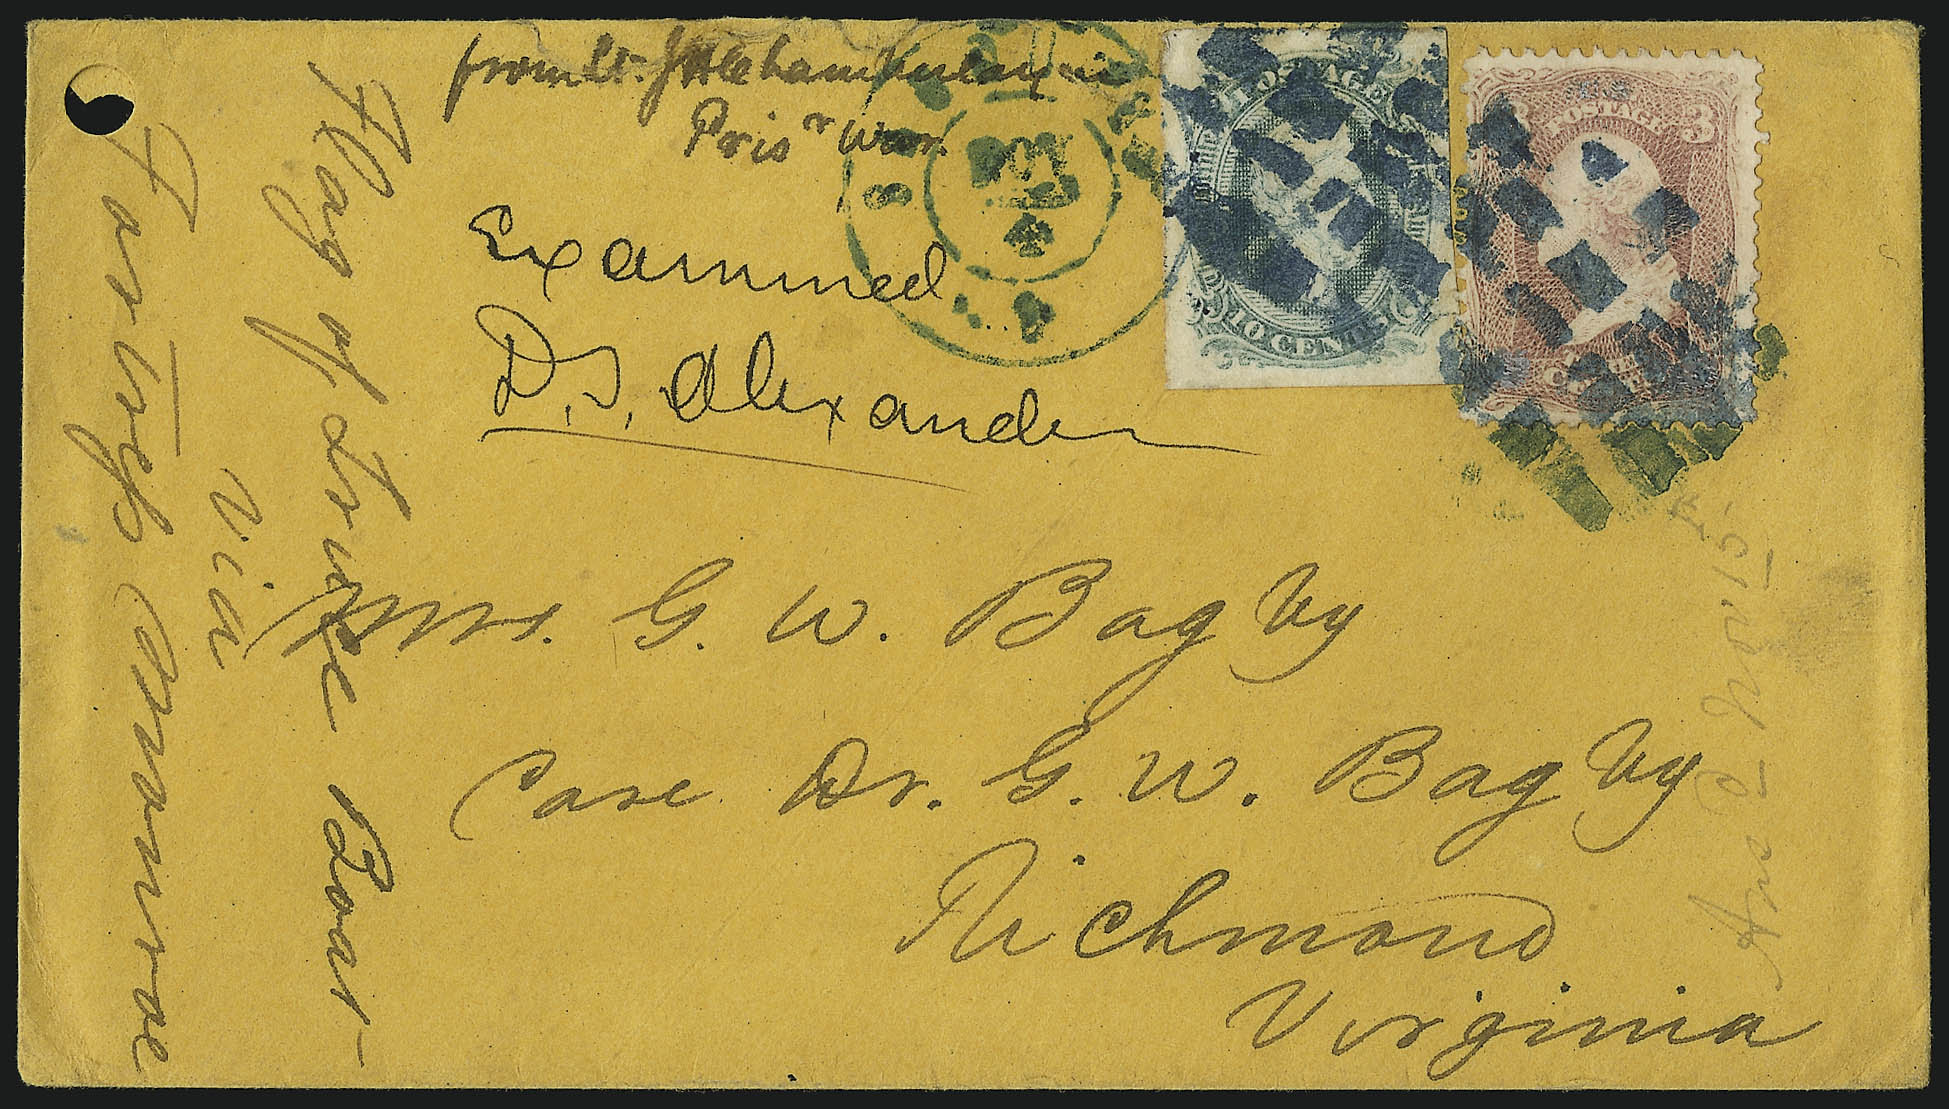 from Lt. J H Chamberlayne
Pris r War.
Examined
D.S. Alexander
Flag of Truce Boat
via
Fortress Monroe
Mrs. G. W. Bagby
Care Dr. G. W. Bagby
Richmond
Virginia
Ans d Nov 15
OCT
4
POSTAGE
10 CENTS
U.S.
POSTAGE
3